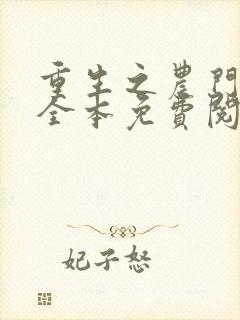 重生之農門
全本免費閱
妃子怒